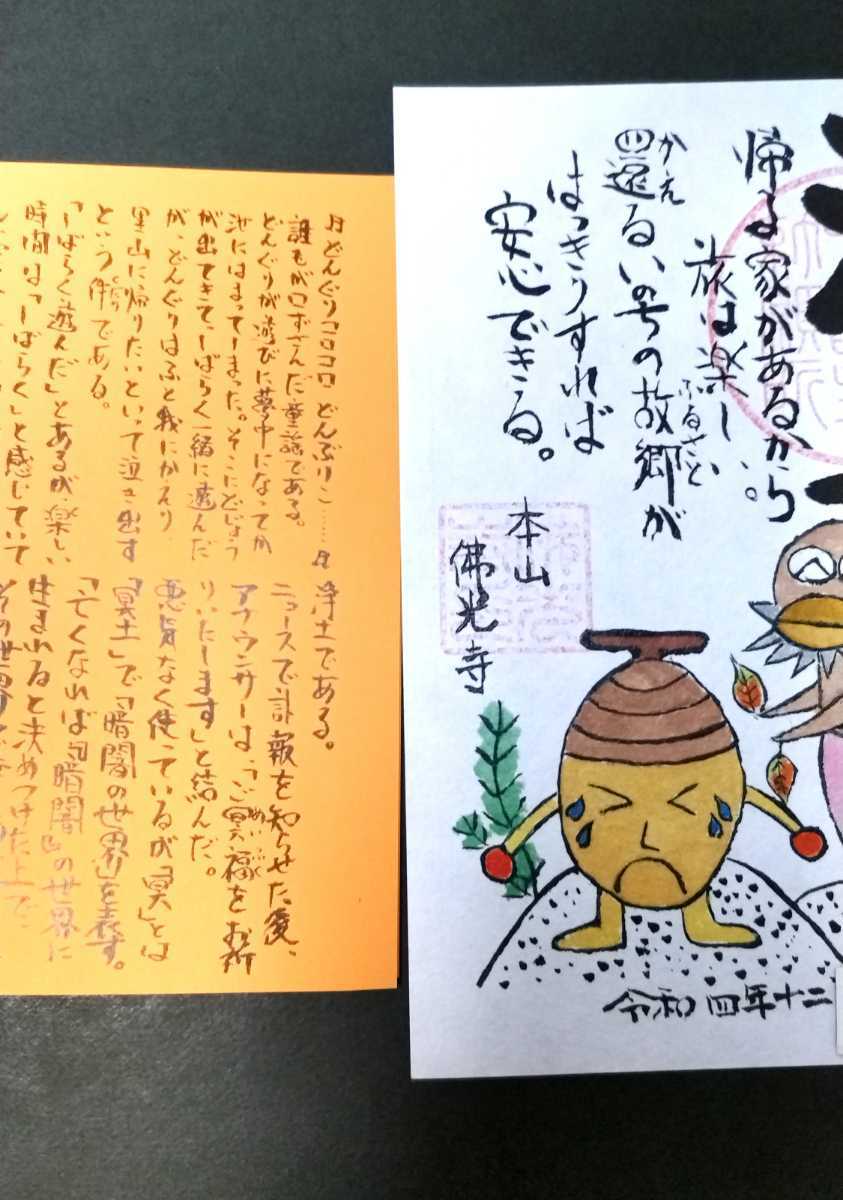 帰る家があるから
旅は楽しい。
還るいのちの故郷が
かえ
ふるさと
はっきりすれば
安心できる。
本山
佛光寺
令和四年十二
♬どんぐりコロコロ どんぶりこ……♬
誰もが口ずさんだ童謡である。
どんぐりが遊びに夢中になってか
池にはまってしまった。そこにどじょう
が出てきて、しばらく一緒に遊んだ
が、どんぐりはふと我にかえり、
里山に帰りたいといって泣き出す
という件である。
くだり
「しばらく遊んだ」とあるが楽しい
時間は「しばらく」と感じていて
浄土である。
ニュースで訃報を知らせた後、
アナウンサーは、「ご冥福をお祈
めいふく
りいたします」と結んだ。
悪気なく使っているが「冥」とは
「冥土」で「暗闇の世界」を表す。
「亡くなれば『暗闇』の世界に
生まれると決めつけた上で、